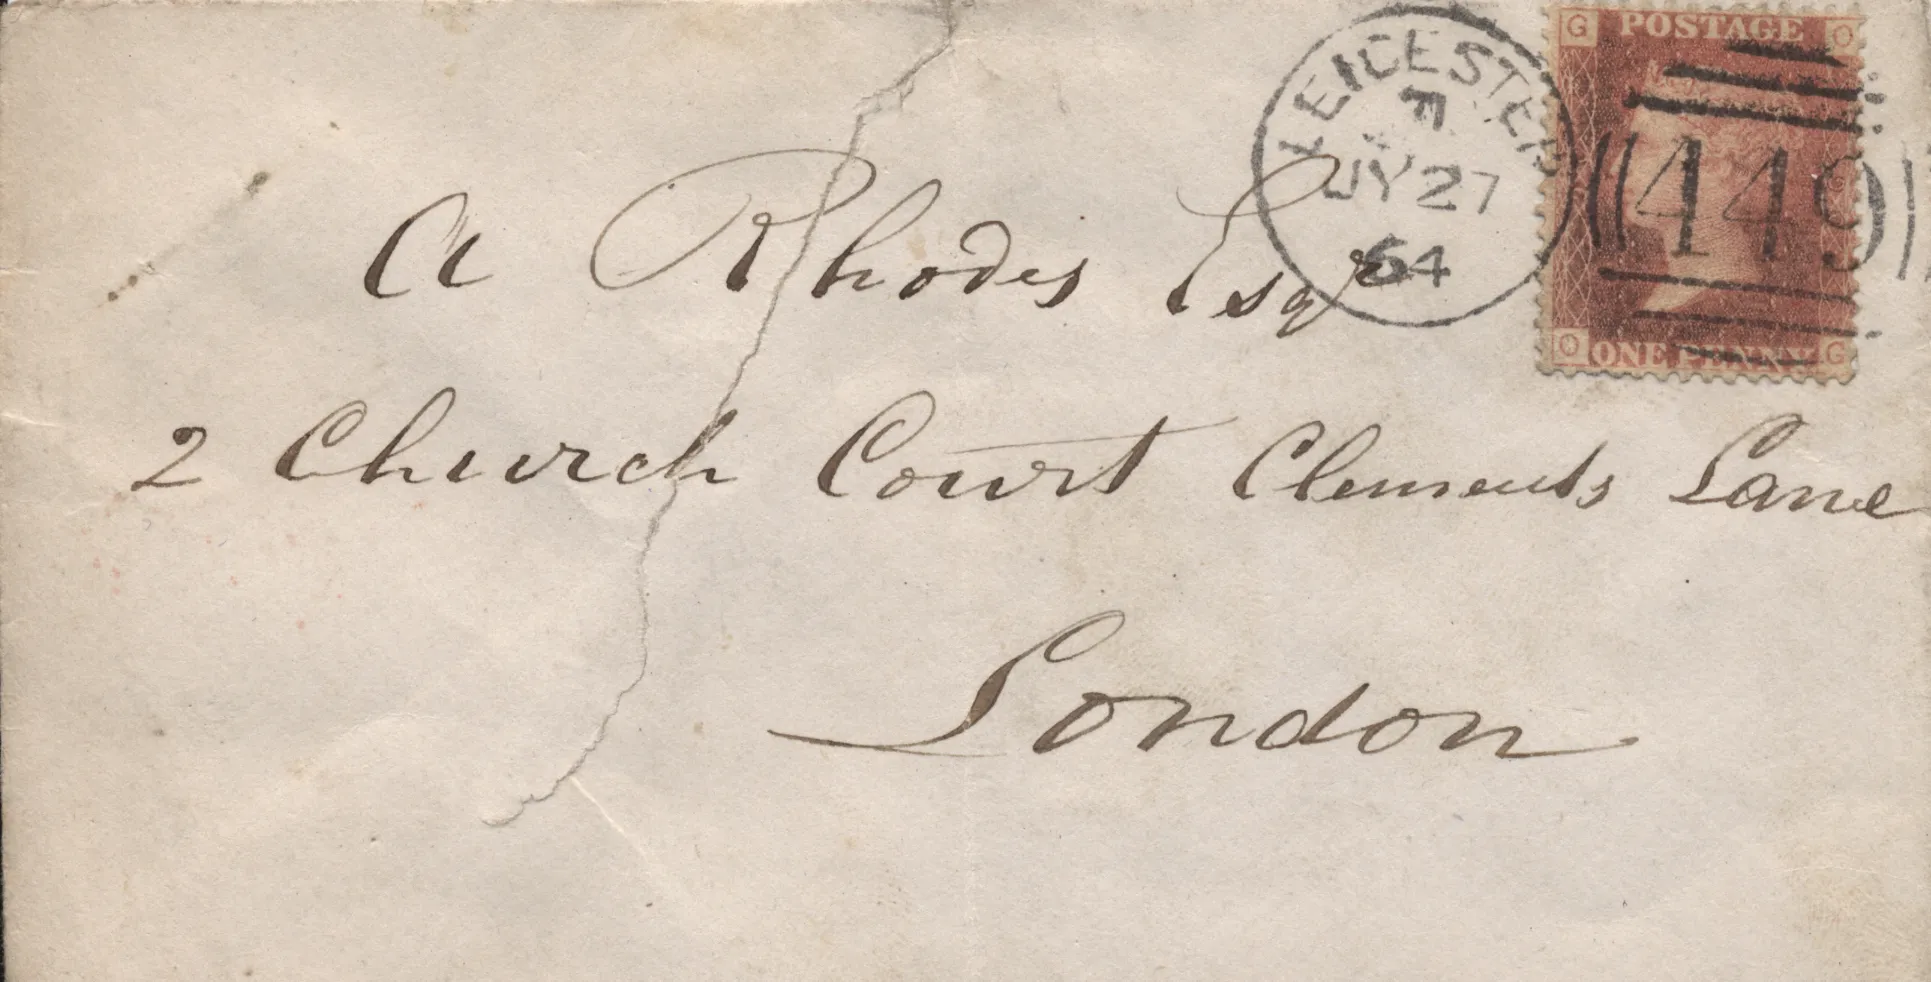 A Rhodes Esqr
2 Church Court Clements Lane
London
LEICESTER
F
JY 27
64
G POSTAGE O
449
O ONE PENNY G